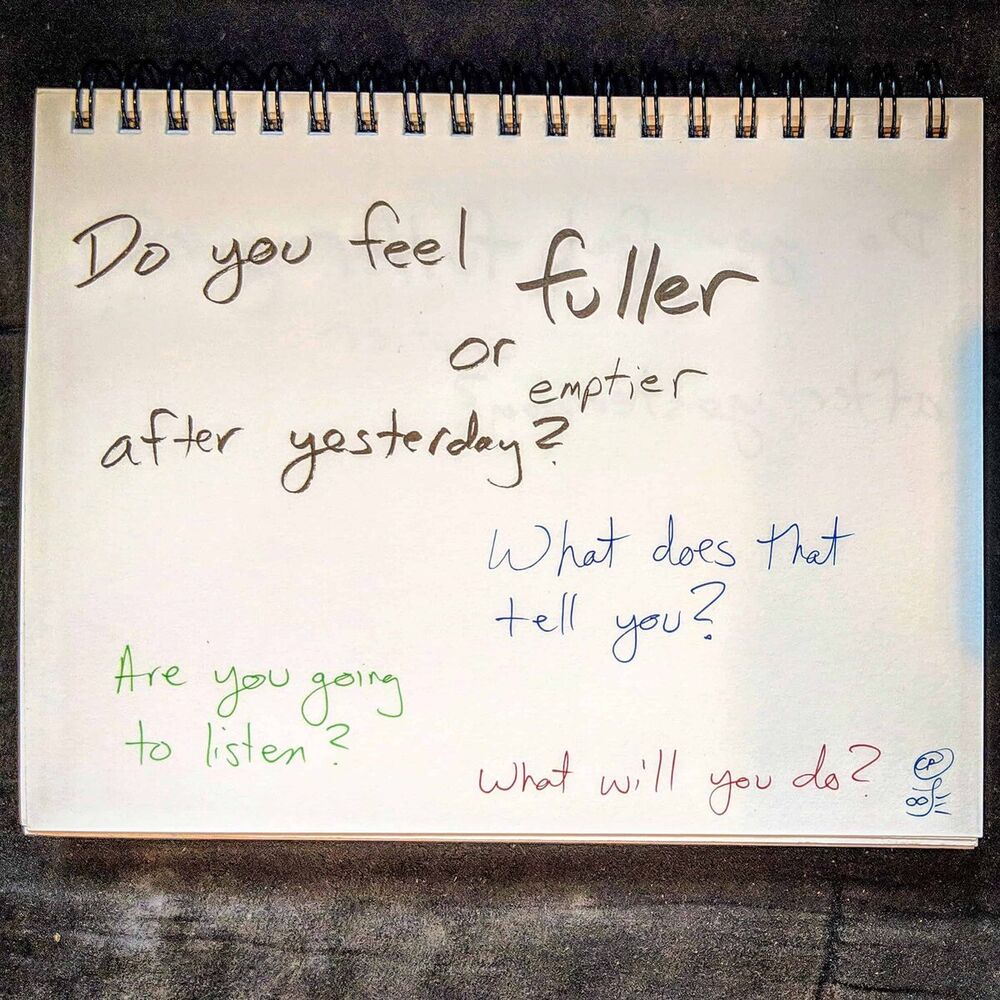 Do you feel fuller
or emptier
after yesterday?
What does that
tell you?
Are you going
to listen?
What will you do?
CP